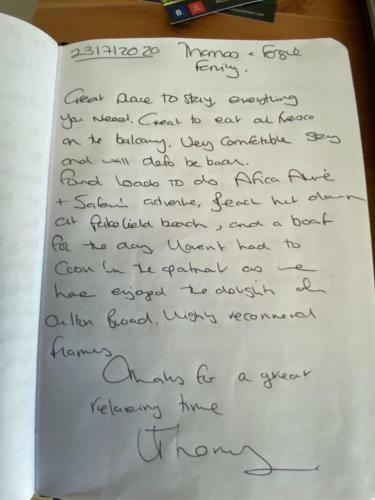 23/7/2020 Thomas + Fergie
Family.
Great place to stay, everything
you need. Great to eat al fresco
on the balcony. Very comfetable stay
and will defo be back.
Found loads to do Africa Alive
+ Safari advente, beach hut down
at pakefield beach, and a boat
for the day. Havent had to
Cook in the apatmat as we
have enjoyed the delights of
Oulton Broad. Highly recommend
flames
Thanks for a great
relaxing time
Thomas